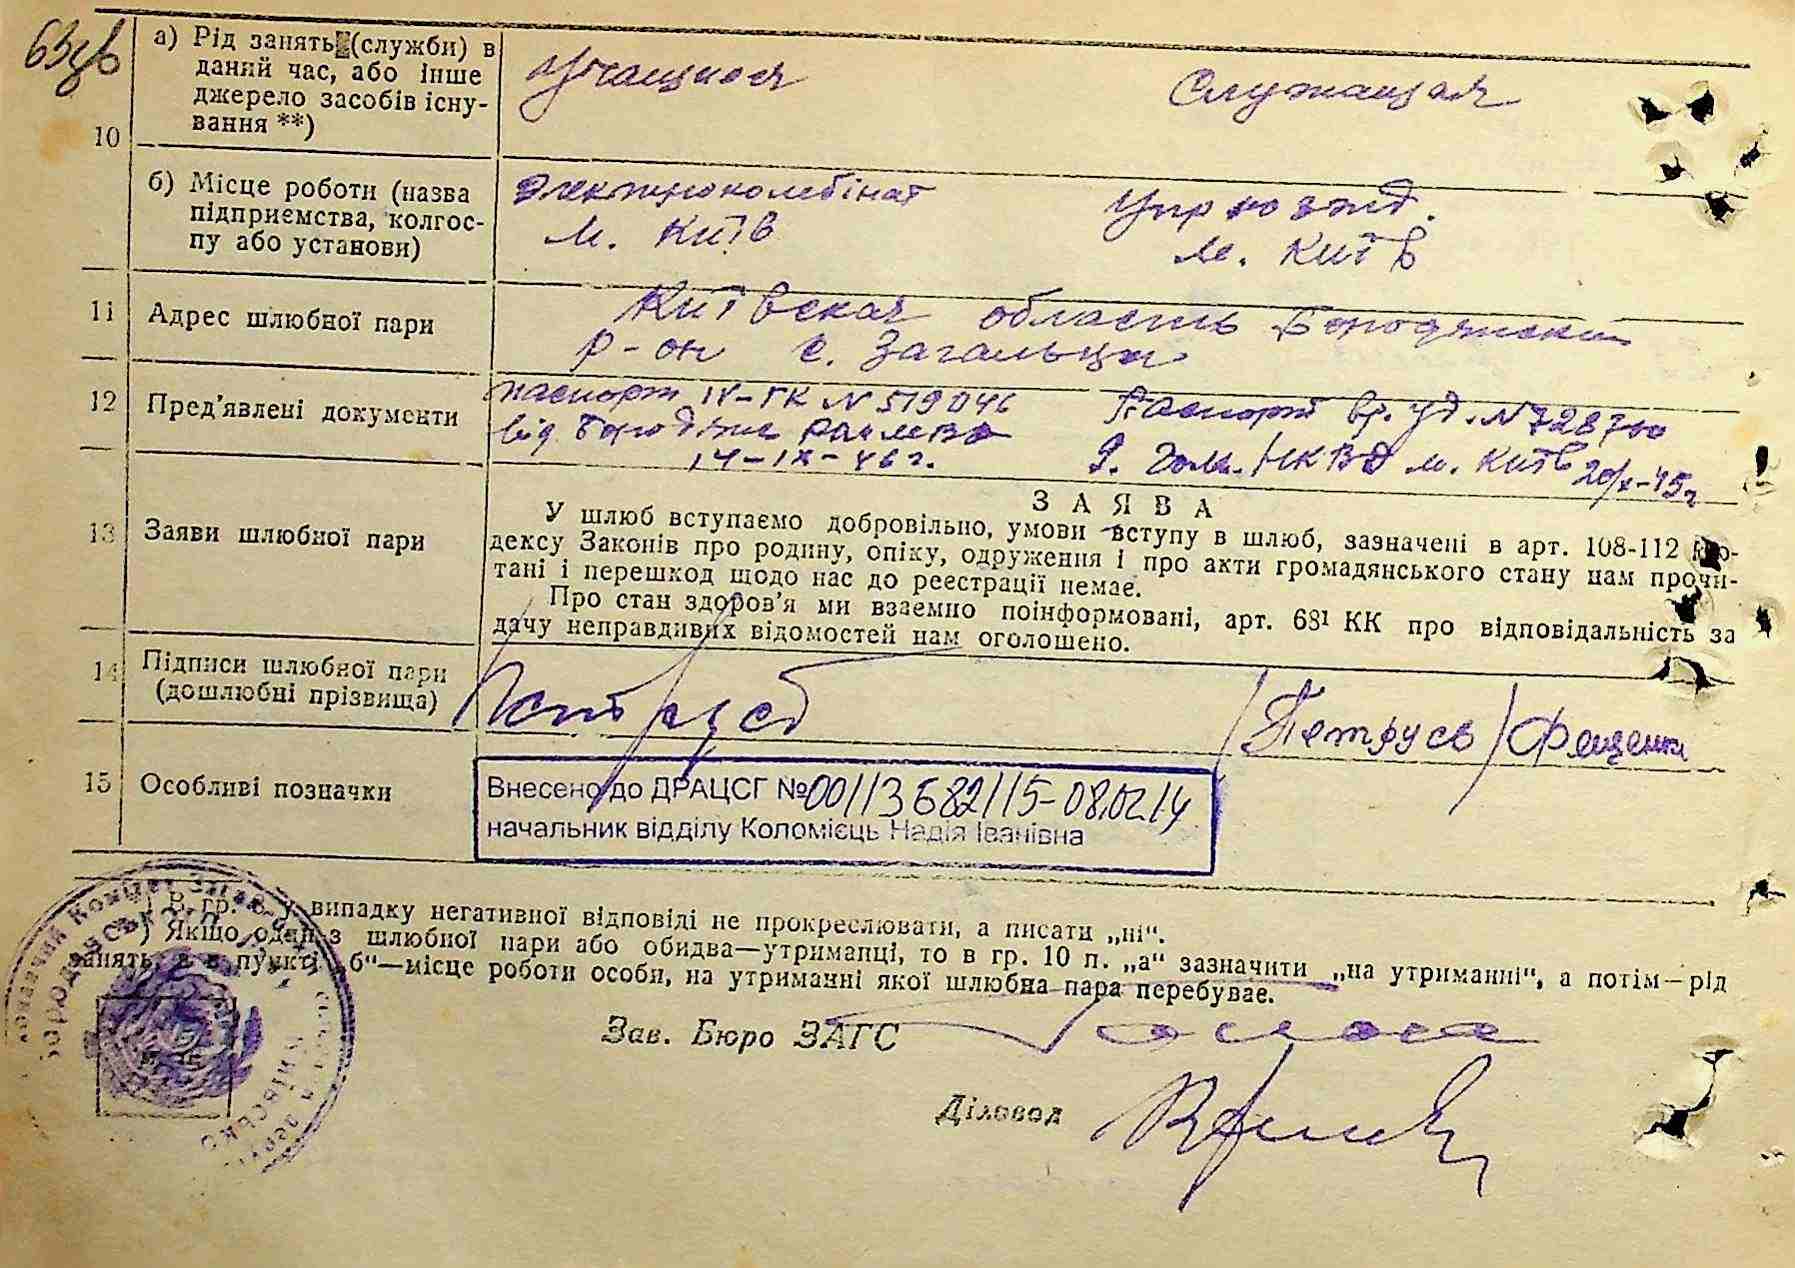 63
10
а) Рід занять (служби) в
даний час, або інше
джерело засобів існу-
вання **)
Учащийся
Служащая
б) Місце роботи (назва
підприємства, колгос-
пу або установи)
Электрокомбінат
м. Київ
Упр
м. Київ
11
Адрес шлюбної пари
Київская область Бородянский
р-он с. Загальцы
12
Пред'явлені документи
паспорт IV-ГК N 519046
від Бородянс
14-IX-46 г.
Паспорт вр. уд. N 728700
9. НКВД м. Київ 20/X-45 г
13
Заяви шлюбної пари
ЗАЯВА
У шлюб вступаємо добровільно, умови вступу в шлюб, зазначені в арт. 108-112 Ко-
дексу Законів про родину, опіку, одруження і про акти громадянського стану нам прочи-
тані і перешкод щодо нас до реестрації немає.
Про стан здоров'я ми взаемно поінформовані, арт. 68¹ КК про відповідальність за
дачу неправдивих відомостей нам оголошено.
14
Підписи шлюбної пари
(дошлюбні прізвища)
Петрусь
/Петрусь/ Фещенко
15
Особливі позначки
Внесено до ДРАЦСГ №00113682115-08.02.14
начальник відділу Коломієць Надія Іванівна
В гр. 8 у випадку негативної відповіді не прокреслювати, а писати „ні“.
) Якщо один з шлюбної пари або обидва—утриманці, то в гр. 10 п. „а“ зазначити „на утриманні“, а потім—рід
занять, а в пункті „б“—місце роботи особи, на утриманні якої шлюбна пара перебуває.
Зав. Бюро ЗАГС
Діловод